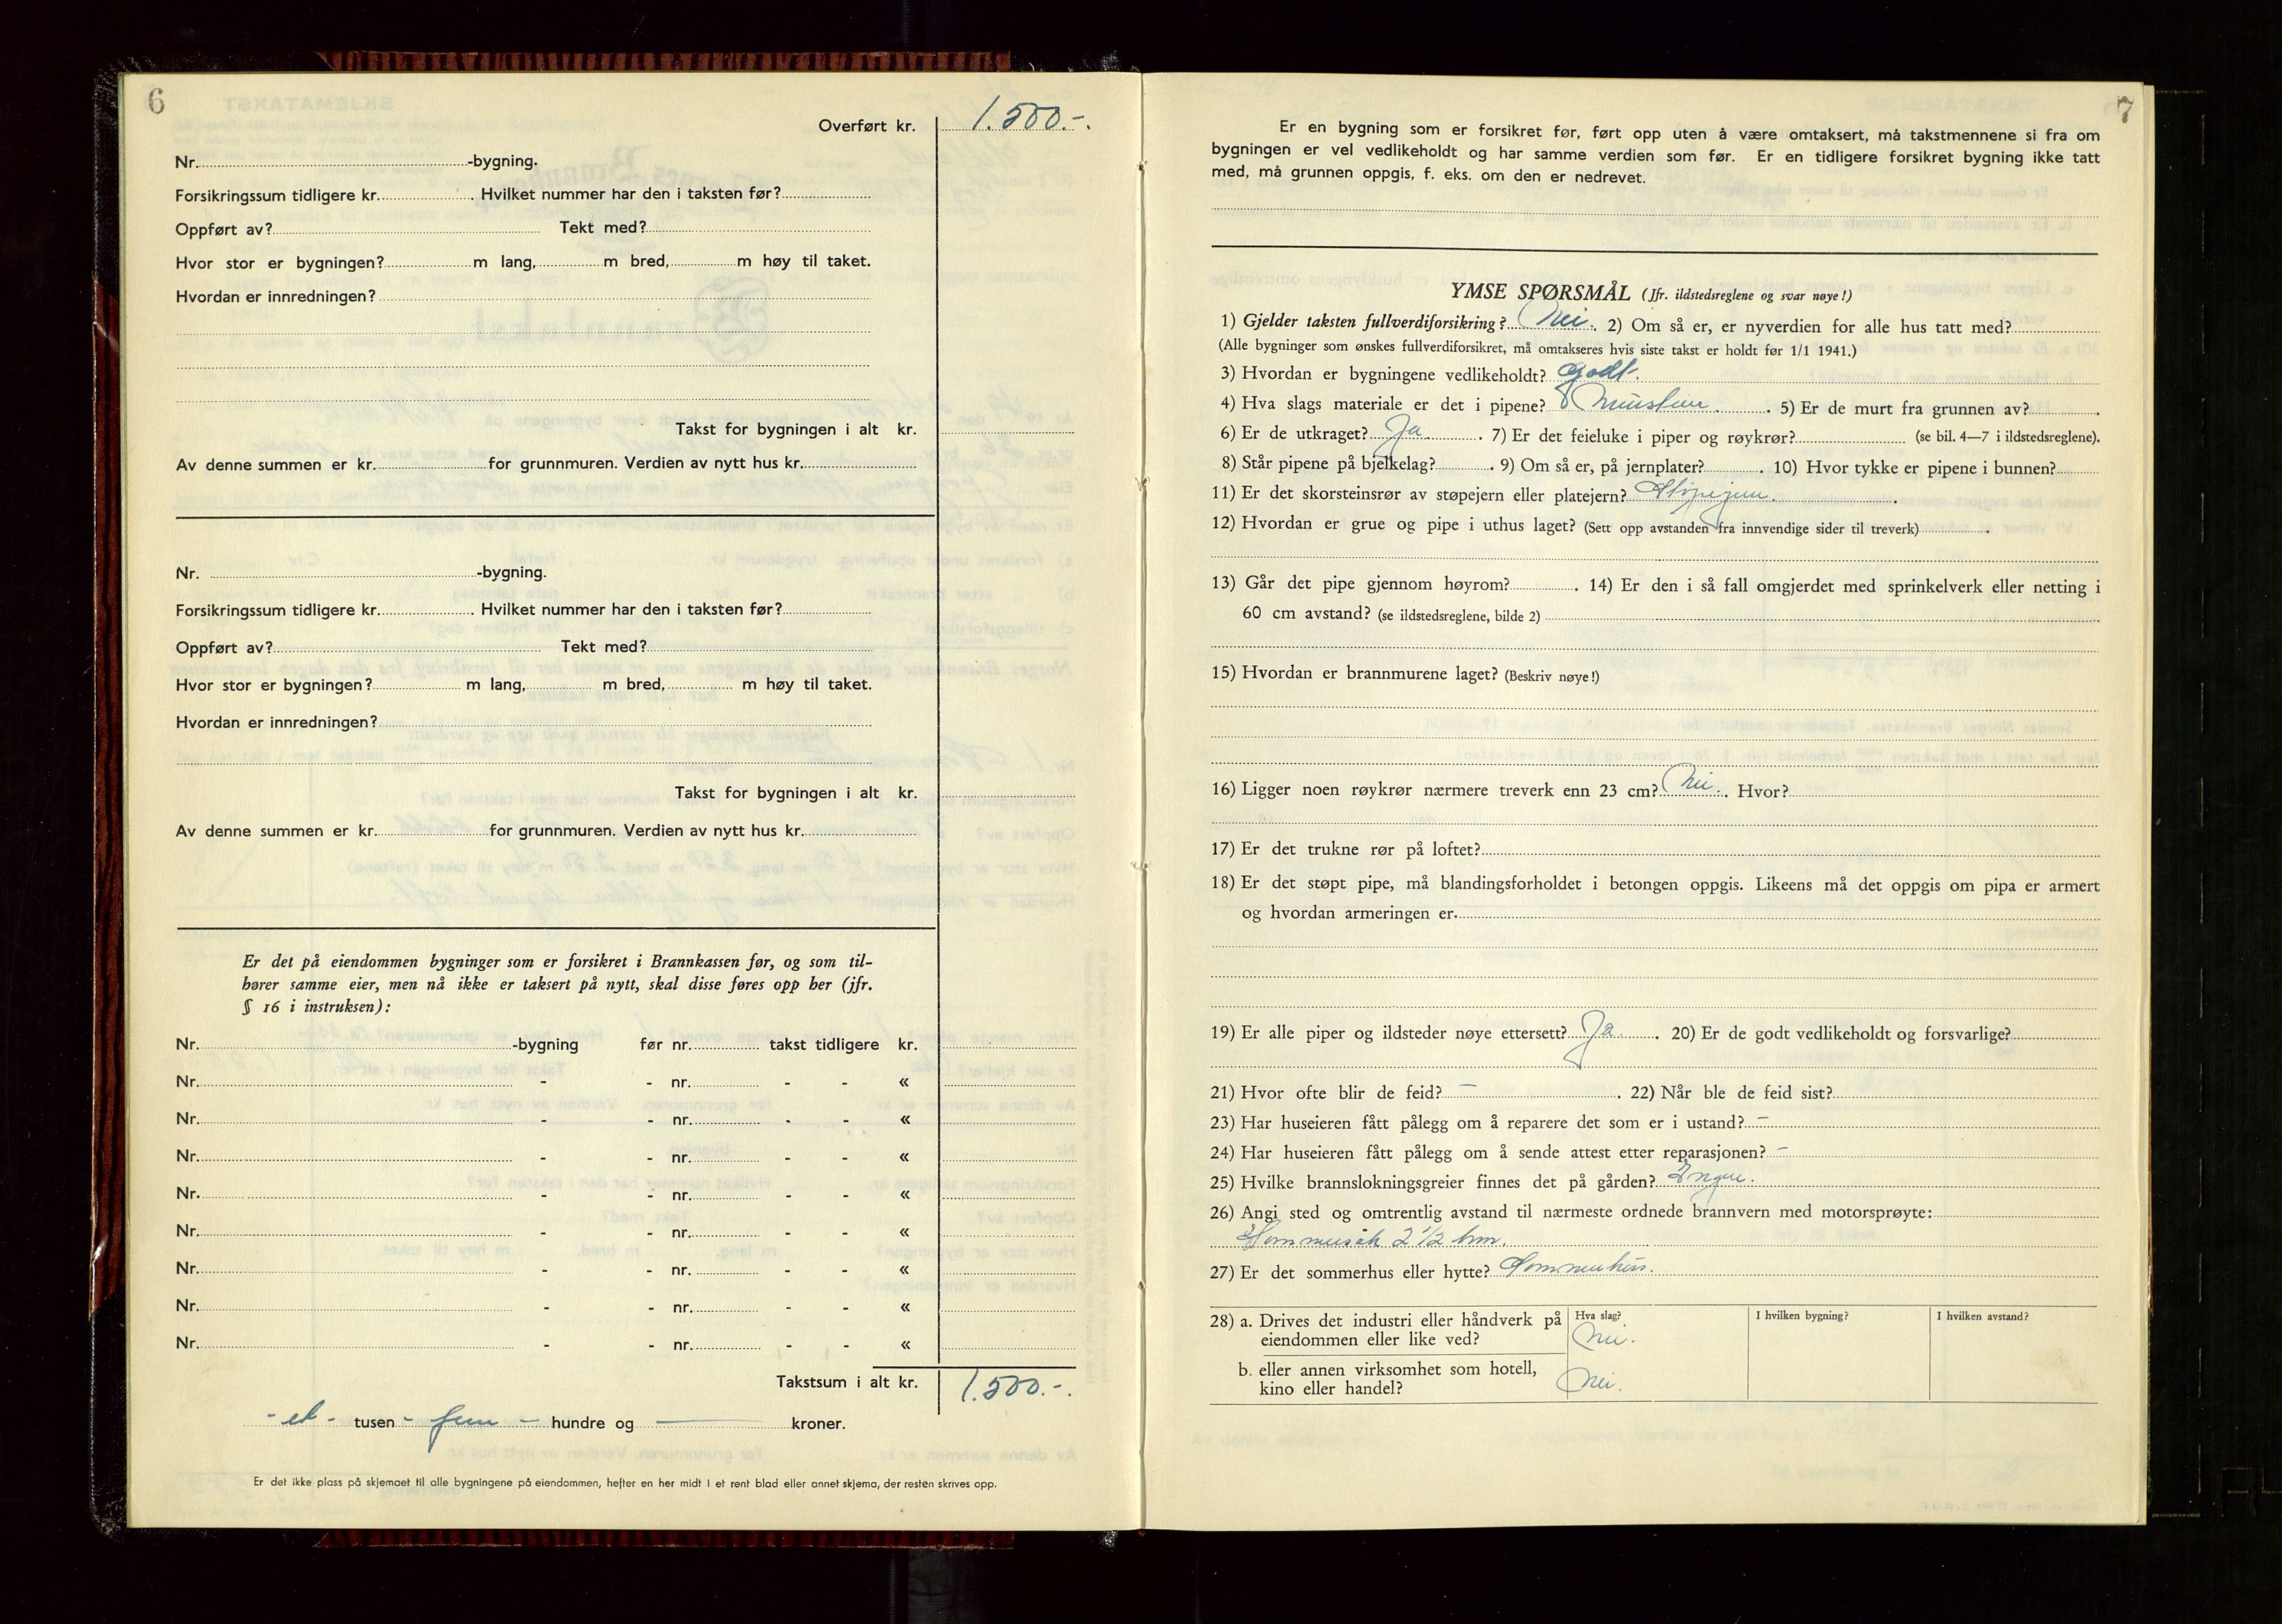 6
Overført kr. 1.500.-.
Nr. -bygning.
Forsikringssum tidligere kr. . Hvilket nummer har den i taksten før?
Oppført av? Tekt med?
Hvor stor er bygningen? m lang, m bred, m høy til taket.
Hvordan er innredningen?
Takst for bygningen i alt kr.
Av denne summen er kr. for grunnmuren. Verdien av nytt hus kr.
Nr. -bygning.
Forsikringssum tidligere kr. . Hvilket nummer har den i taksten før?
Oppført av? Tekt med?
Hvor stor er bygningen? m lang, m bred, m høy til taket.
Hvordan er innredningen?
Takst for bygningen i alt kr.
Av denne summen er kr. for grunnmuren. Verdien av nytt hus kr.
Er det på eiendommen bygninger som er forsikret i Brannkassen før, og som til-
hører samme eier, men nå ikke er taksert på nytt, skal disse føres opp her (jfr.
§ 16 i instruksen):
Nr. -bygning før nr. takst tidligere kr.
Nr. - - nr. - - «
Nr. - - nr. - - «
Nr. - - nr. - - «
Nr. - - nr. - - «
Nr. - - nr. - - «
Nr. - - nr. - - «
Nr. - - nr. - - «
Nr. - - nr. - - «
Takstsum i alt kr. 1.500.-.
- et - tusen - fem - hundre og — kroner.
Er det ikke plass på skjemaet til alle bygningene på eiendommen, hefter en her midt i et rent blad eller annet skjema, der resten skrives opp.
7
Er en bygning som er forsikret før, ført opp uten å være omtaksert, må takstmennene si fra om
bygningen er vel vedlikeholdt og har samme verdien som før. Er en tidligere forsikret bygning ikke tatt
med, må grunnen oppgis, f. eks. om den er nedrevet.
YMSE SPØRSMÅL (Jfr. ildstedsreglene og svar nøye!)
1) Gjelder taksten fullverdiforsikring? Nei. 2) Om så er, er nyverdien for alle hus tatt med?
(Alle bygninger som ønskes fullverdiforsikret, må omtakseres hvis siste takst er holdt før 1/1 1941.)
3) Hvordan er bygningene vedlikeholdt? Godt.
4) Hva slags materiale er det i pipene? Murstein. . 5) Er de murt fra grunnen av? .
6) Er de utkraget? Ja . 7) Er det feieluke i piper og røykrør? (se bil. 4—7 i ildstedsreglene).
8) Står pipene på bjelkelag? . 9) Om så er, på jernplater? . 10) Hvor tykke er pipene i bunnen?
11) Er det skorsteinsrør av støpejern eller platejern? Støpejern. .
12) Hvordan er grue og pipe i uthus laget? (Sett opp avstanden fra innvendige sider til treverk) .
13) Går det pipe gjennom høyrom? . 14) Er den i så fall omgjerdet med sprinkelverk eller netting i
60 cm avstand? (se ildstedsreglene, bilde 2)
15) Hvordan er brannmurene laget? (Beskriv nøye!)
16) Ligger noen røykrør nærmere treverk enn 23 cm? Nei. . Hvor?
17) Er det trukne rør på loftet?
18) Er det støpt pipe, må blandingsforholdet i betongen oppgis. Likeens må det oppgis om pipa er armert
og hvordan armeringen er.
19) Er alle piper og ildsteder nøye ettersett? Ja . 20) Er de godt vedlikeholdt og forsvarlige?
21) Hvor ofte blir de feid? — . 22) Når ble de feid sist?
23) Har huseieren fått pålegg om å reparere det som er i ustand? —
24) Har huseieren fått pålegg om å sende attest etter reparasjonen? —
25) Hvilke brannslokningsgreier finnes det på gården? Ingen.
26) Angi sted og omtrentlig avstand til nærmeste ordnede brannvern med motorsprøyte:
Hommersåk 2 1/2 km.
27) Er det sommerhus eller hytte? Sommerhus.
28) a. Drives det industri eller håndverk på Hva slag? I hvilken bygning? I hvilken avstand?
eiendommen eller like ved? Nei.
b. eller annen virksomhet som hotell,
kino eller handel? Nei.